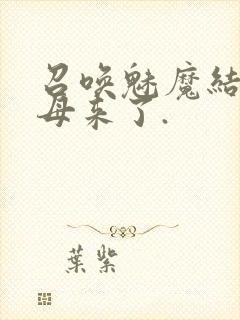 召喚魅魔結
母来了.
葉紫